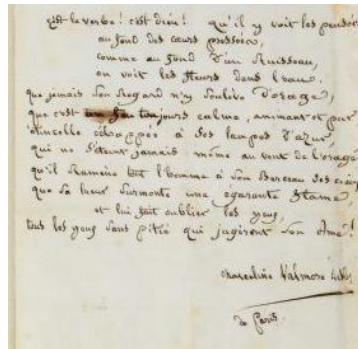 c'est le verbe ! c'est dieu ! qu'il y voit les pensées
au fond des cœurs pressées,
comme au fond d'un Ruisseau,
on voit les fleurs dans l'eau.
que jamais son Regard n'y soulève d'orage,
que c'est un feu toujours calme, animant et pur
étincelle échappée à des lampes d'azur,
qui ne s'éteint jamais même au vent de l'orage
qu'il Ramène tout l'homme à son Berceau des cieux
que sa lueur surmonte une flamme,
et lui fait oublier les yeux,
tous les yeux sans pitié qui jugèrent son âme !
Marceline Valmore
de Paris.